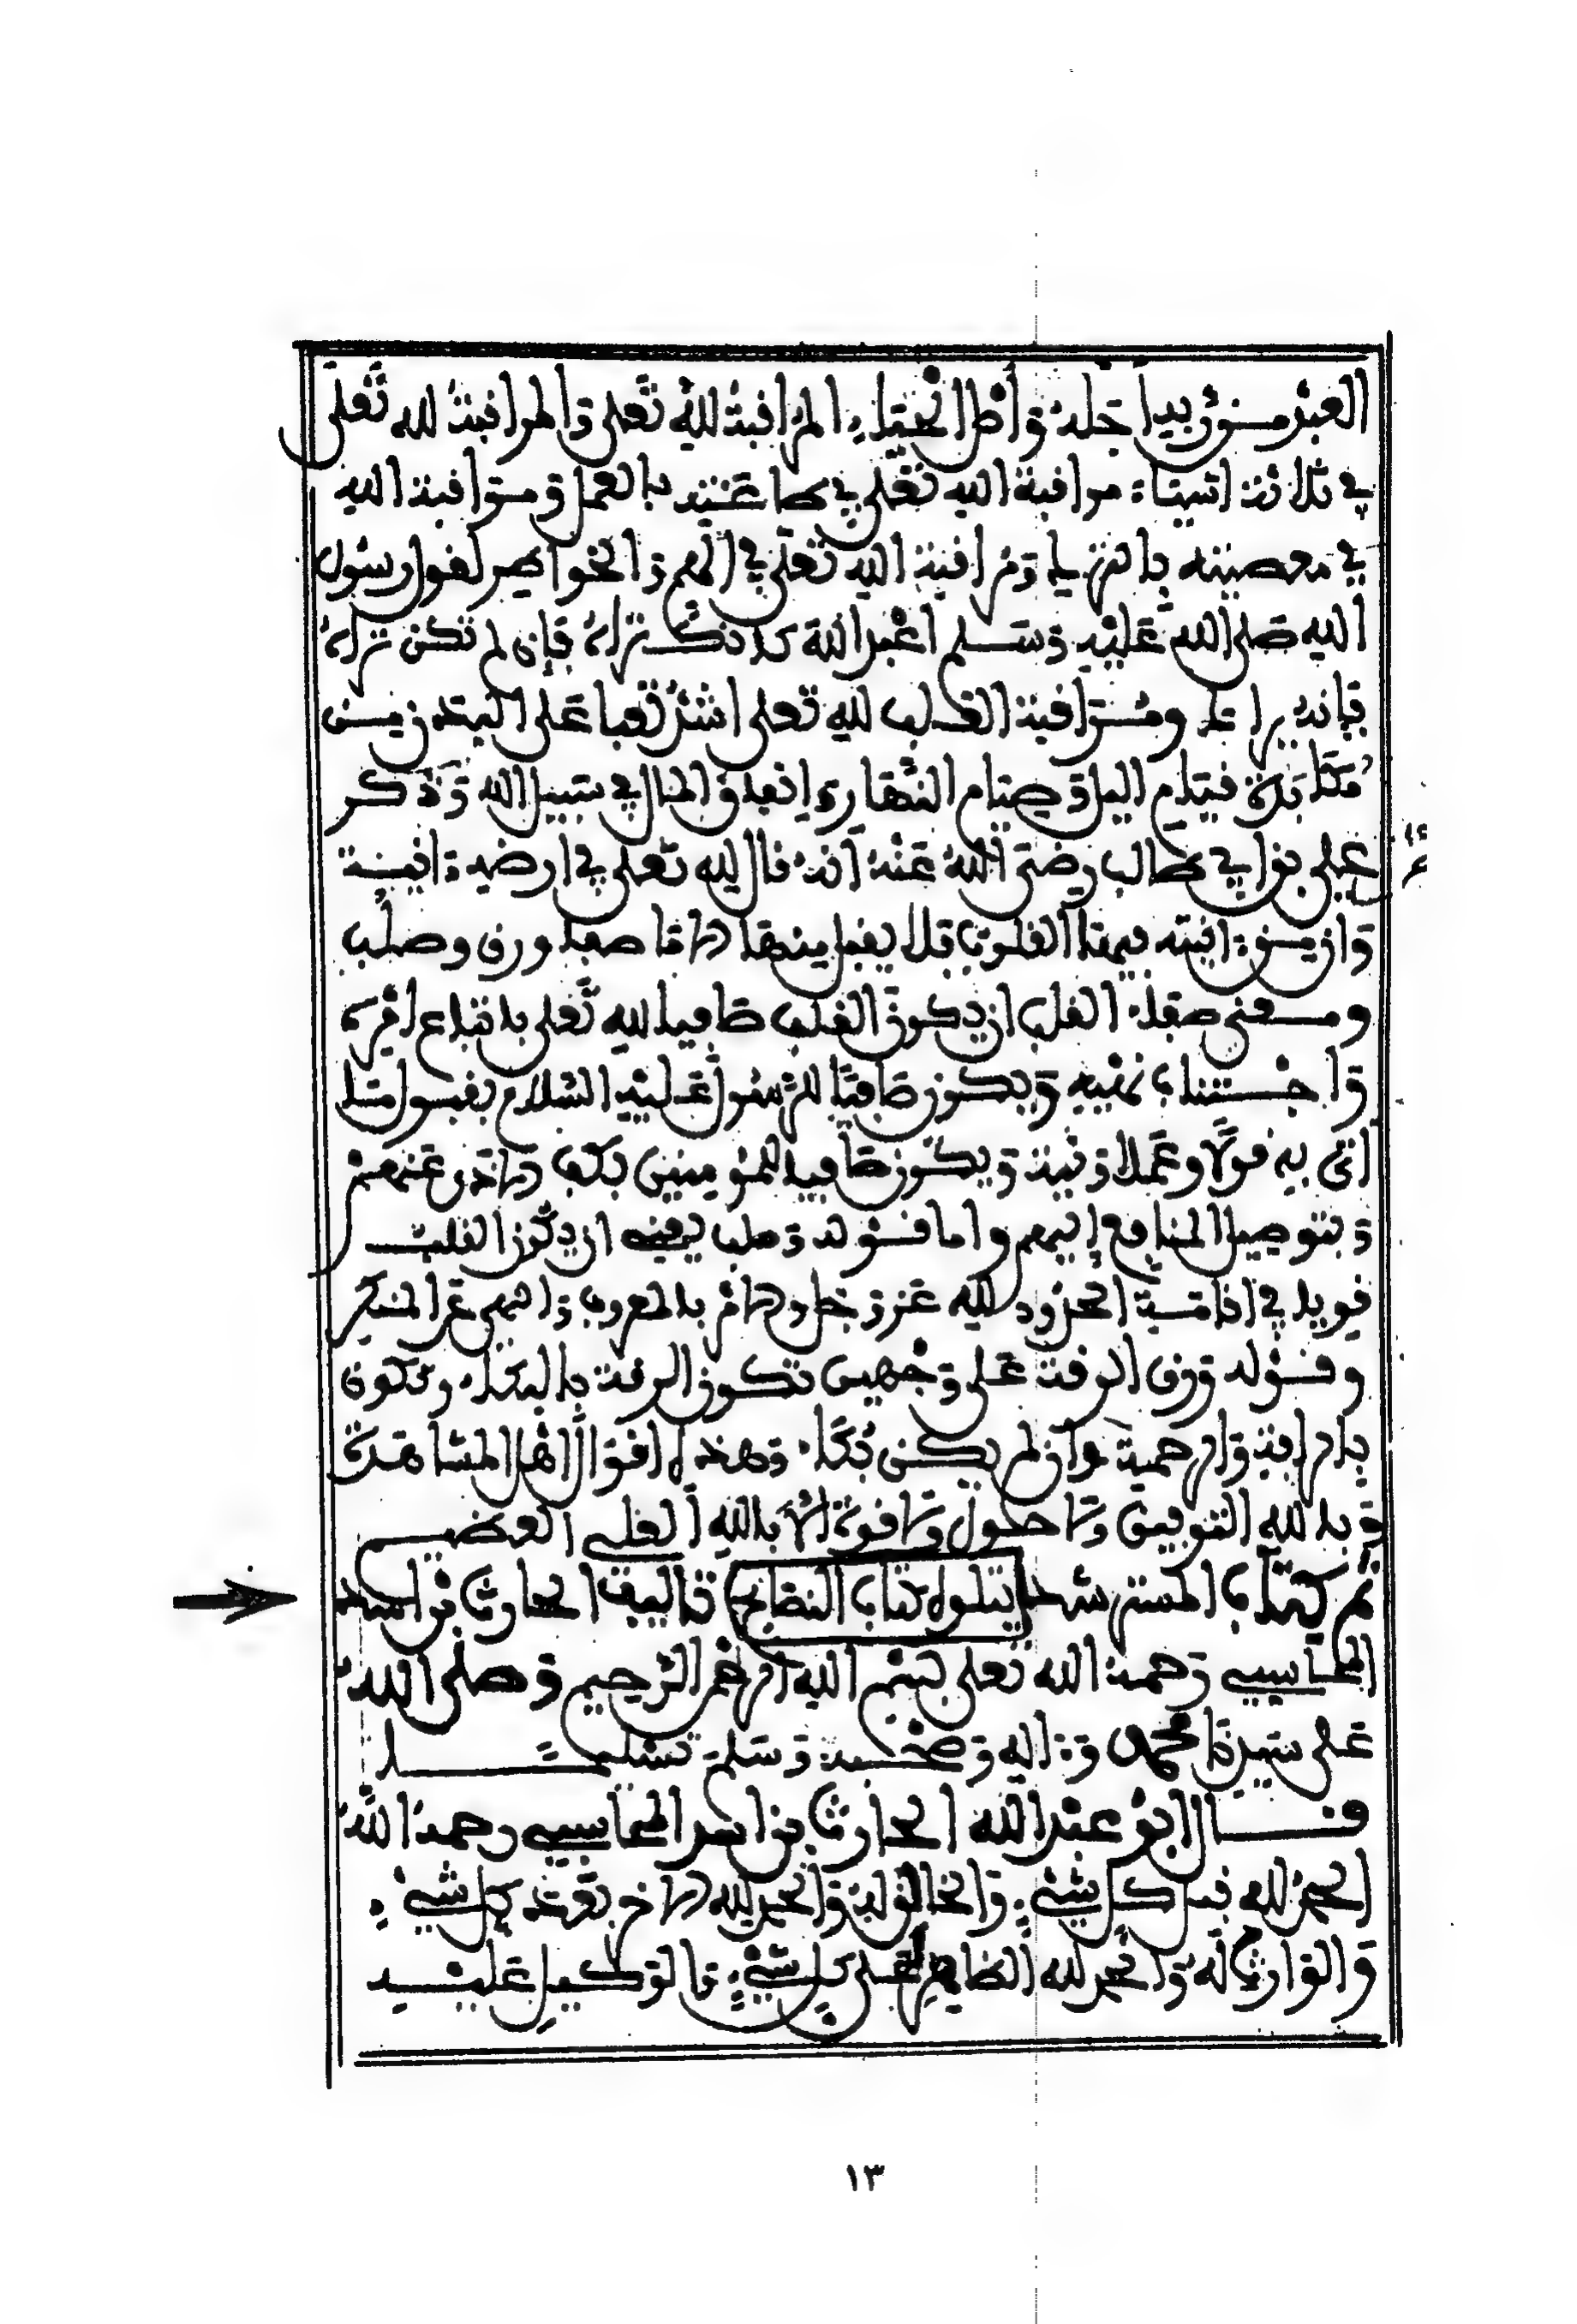 العبد مسؤل بيدا جله وأصل الحياء المراقبة لله تعلى والمراقبة لله تعلى
في ثلاثة اشياء مراقبة الله تعلى في طاعته بالعمل ومراقبة الله
في معصيته بالترك ومراقبة الله تعلى في الهم والخواطر لقول رسول
الله صلى الله عليه وسلم اعبد الله كانك تراه فإن لم تكن تراه
فإنه يراك ومراقبة القلب لله تعلى اشد تعبا على البدن من
مكابدة قيام اليل وصيام النهار وإنفاق المال في سبيل الله وذكر
عن
علي بن ابي طالب رضي الله عنه انه قال لله تعلى في ارضه ءانية
وان من ءانيته فيها القلوب فلا يقبل منها الا ما صفا ورق وصلب
ومعنى صفاء القلب ان يكون القلب صافيا لله تعلى باتباع امره
واجتناب نهيه ويكون صافيا للرسول عليه السلام بقبول ما
اتى به قولا وعملا ونية ويكون صافيا للمومنين بكف الاذى عنهم
وبتوصيل المنافع إليهم واما قوله وصلب يعني ان يكون القلب
قويا في اقامة الحدود لله عز وجل والامر بالمعروف والنهي عن المنكر
وقوله ورق الرقة على وجهين تكون الرقة بالبكاء وتكون
بالرافة والرحمة وان لم يكن بكاء وهذه اقوال اهل المشاهدة
وبالله التوفيق ولا حول ولا قوة الا بالله العلي العضيم
تم كتاب المسترشد يتلوه كتاب النصائح تاليف الحارث بن اسد
المحاسبي رحمة الله تعلى بسم الله الرحمن الرحيم وصلى الله
على سيدنا محمد وءاله وصحبه وسلم تسليما
قال ابو عبد الله الحارث بن اسد المحاسبي رحمه الله
الحمد لله قبل كل شيء والخالق له والحمد لله الاخر بعد كل شيء
والوارث له والحمد لله الظاهر على كل شيء والوكيل عليه
١٣